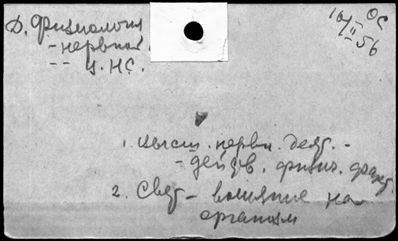 Д. Физиология
- нервная
-- ц. НС.
ОС
10/II 56
1. высш. нервн. деят. -
- действ. физич. факт.
2. Свет - влияние на
организм